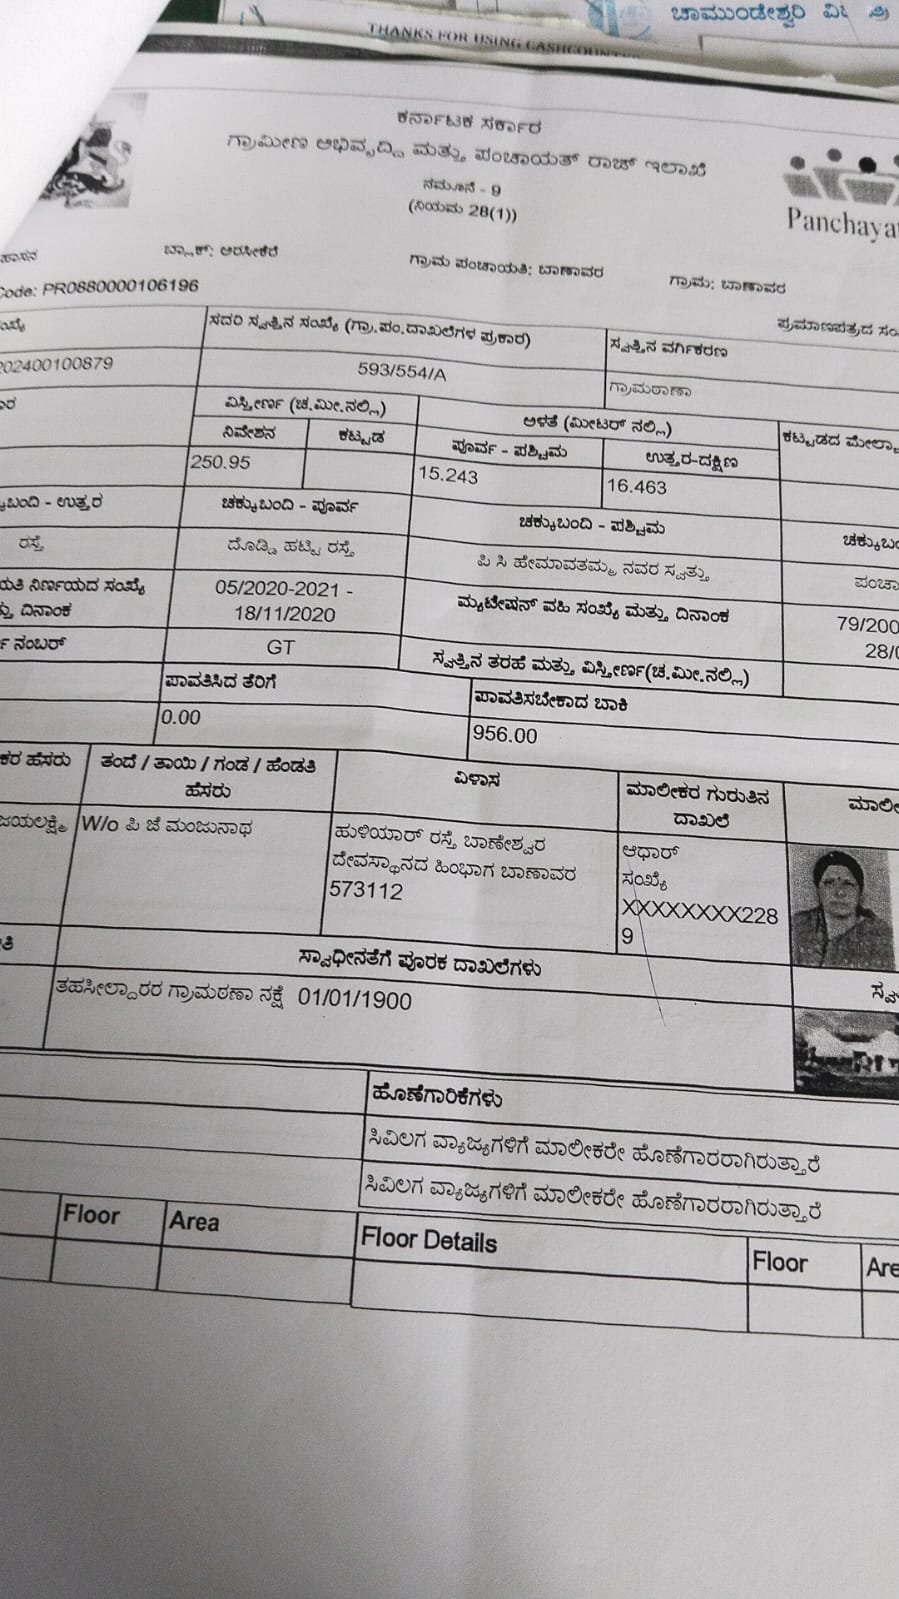 ಚಾಮುಂಡೇಶ್ವರಿ
THANKS FOR USING
ಕರ್ನಾಟಕ ಸರ್ಕಾರ
ಗ್ರಾಮೀಣ ಅಭಿವೃದ್ದಿ ಮತ್ತು ಪಂಚಾಯತ್ ರಾಜ್ ಇಲಾಖೆ
ನಮೂನೆ - 9
(ನಿಯಮ 28(1))
ಹಾಸನ ಬ್ಲಾಕ್: ಅರಸೀಕೆರೆ ಗ್ರಾಮ ಪಂಚಾಯತಿ: ಬಾಣಾವರ ಗ್ರಾಮ: ಬಾಣಾವರ
Code: PR0880000106196
ಸದರಿ ಸ್ವತ್ತಿನ ಸಂಖ್ಯೆ (ಗ್ರಾ.ಪಂ.ದಾಖಲೆಗಳ ಪ್ರಕಾರ) ಸ್ವತ್ತಿನ ವರ್ಗಿಕರಣ
202400100879 593/554/A ಗ್ರಾಮಠಾಣಾ
ವಿಸ್ತೀರ್ಣ (ಚ.ಮೀ.ನಲ್ಲಿ) ಅಳತೆ (ಮೀಟರ್ ನಲ್ಲಿ) ಕಟ್ಟಡದ
ನಿವೇಶನ ಕಟ್ಟಡ ಪೂರ್ವ - ಪಶ್ಚಿಮ ಉತ್ತರ-ದಕ್ಷಿಣ
250.95 15.243 16.463
ಉತ್ತರ ಚಕ್ಕುಬಂದಿ - ಪೂರ್ವ ಚಕ್ಕುಬಂದಿ - ಪಶ್ಚಿಮ
ರಸ್ತೆ ದೊಡ್ಡಿ ಹಟ್ಟಿ ರಸ್ತೆ ಪಿ ಸಿ ಹೇಮಾವತಮ್ಮ ನವರ ಸ್ವತ್ತು
ನಿರ್ಣಯದ ಸಂಖ್ಯೆ 05/2020-2021 - ಮ್ಯುಟೇಷನ್ ವಹಿ ಸಂಖ್ಯೆ ಮತ್ತು ದಿನಾಂಕ
ದಿನಾಂಕ 18/11/2020
ನಂಬರ್ GT ಸ್ವತ್ತಿನ ತರಹೆ ಮತ್ತು ವಿಸ್ತೀರ್ಣ(ಚ.ಮೀ.ನಲ್ಲಿ)
ಪಾವತಿಸಿದ ತೆರಿಗೆ ಪಾವತಿಸಬೇಕಾದ ಬಾಕಿ
0.00 956.00
ಹೆಸರು ತಂದೆ / ತಾಯಿ / ಗಂಡ / ಹೆಂಡತಿ ವಿಳಾಸ ಮಾಲೀಕರ ಗುರುತಿನ
ಹೆಸರು ದಾಖಲೆ
ಜಯಲಕ್ಷ್ಮಿ W/o ಪಿ ಜೆ ಮಂಜುನಾಥ ಹುಳಿಯಾರ್ ರಸ್ತೆ ಬಾಣೇಶ್ವರ ಆಧಾರ್
ದೇವಸ್ಥಾನದ ಹಿಂಭಾಗ ಬಾಣಾವರ ಸಂಖ್ಯೆ
573112 XXXXXXXX228
9
ಸ್ವಾಧೀನತೆಗೆ ಪೂರಕ ದಾಖಲೆಗಳು
ತಹಸೀಲ್ದಾರರ ಗ್ರಾಮಠಣಾ ನಕ್ಷೆ 01/01/1900
ಹೊಣೆಗಾರಿಕೆಗಳು
ಸಿವಿಲಗ ವ್ಯಾಜ್ಯಗಳಿಗೆ ಮಾಲೀಕರೇ ಹೊಣೆಗಾರರಾಗಿರುತ್ತಾರೆ
ಸಿವಿಲಗ ವ್ಯಾಜ್ಯಗಳಿಗೆ ಮಾಲೀಕರೇ ಹೊಣೆಗಾರರಾಗಿರುತ್ತಾರೆ
Floor Area Floor Details Floor